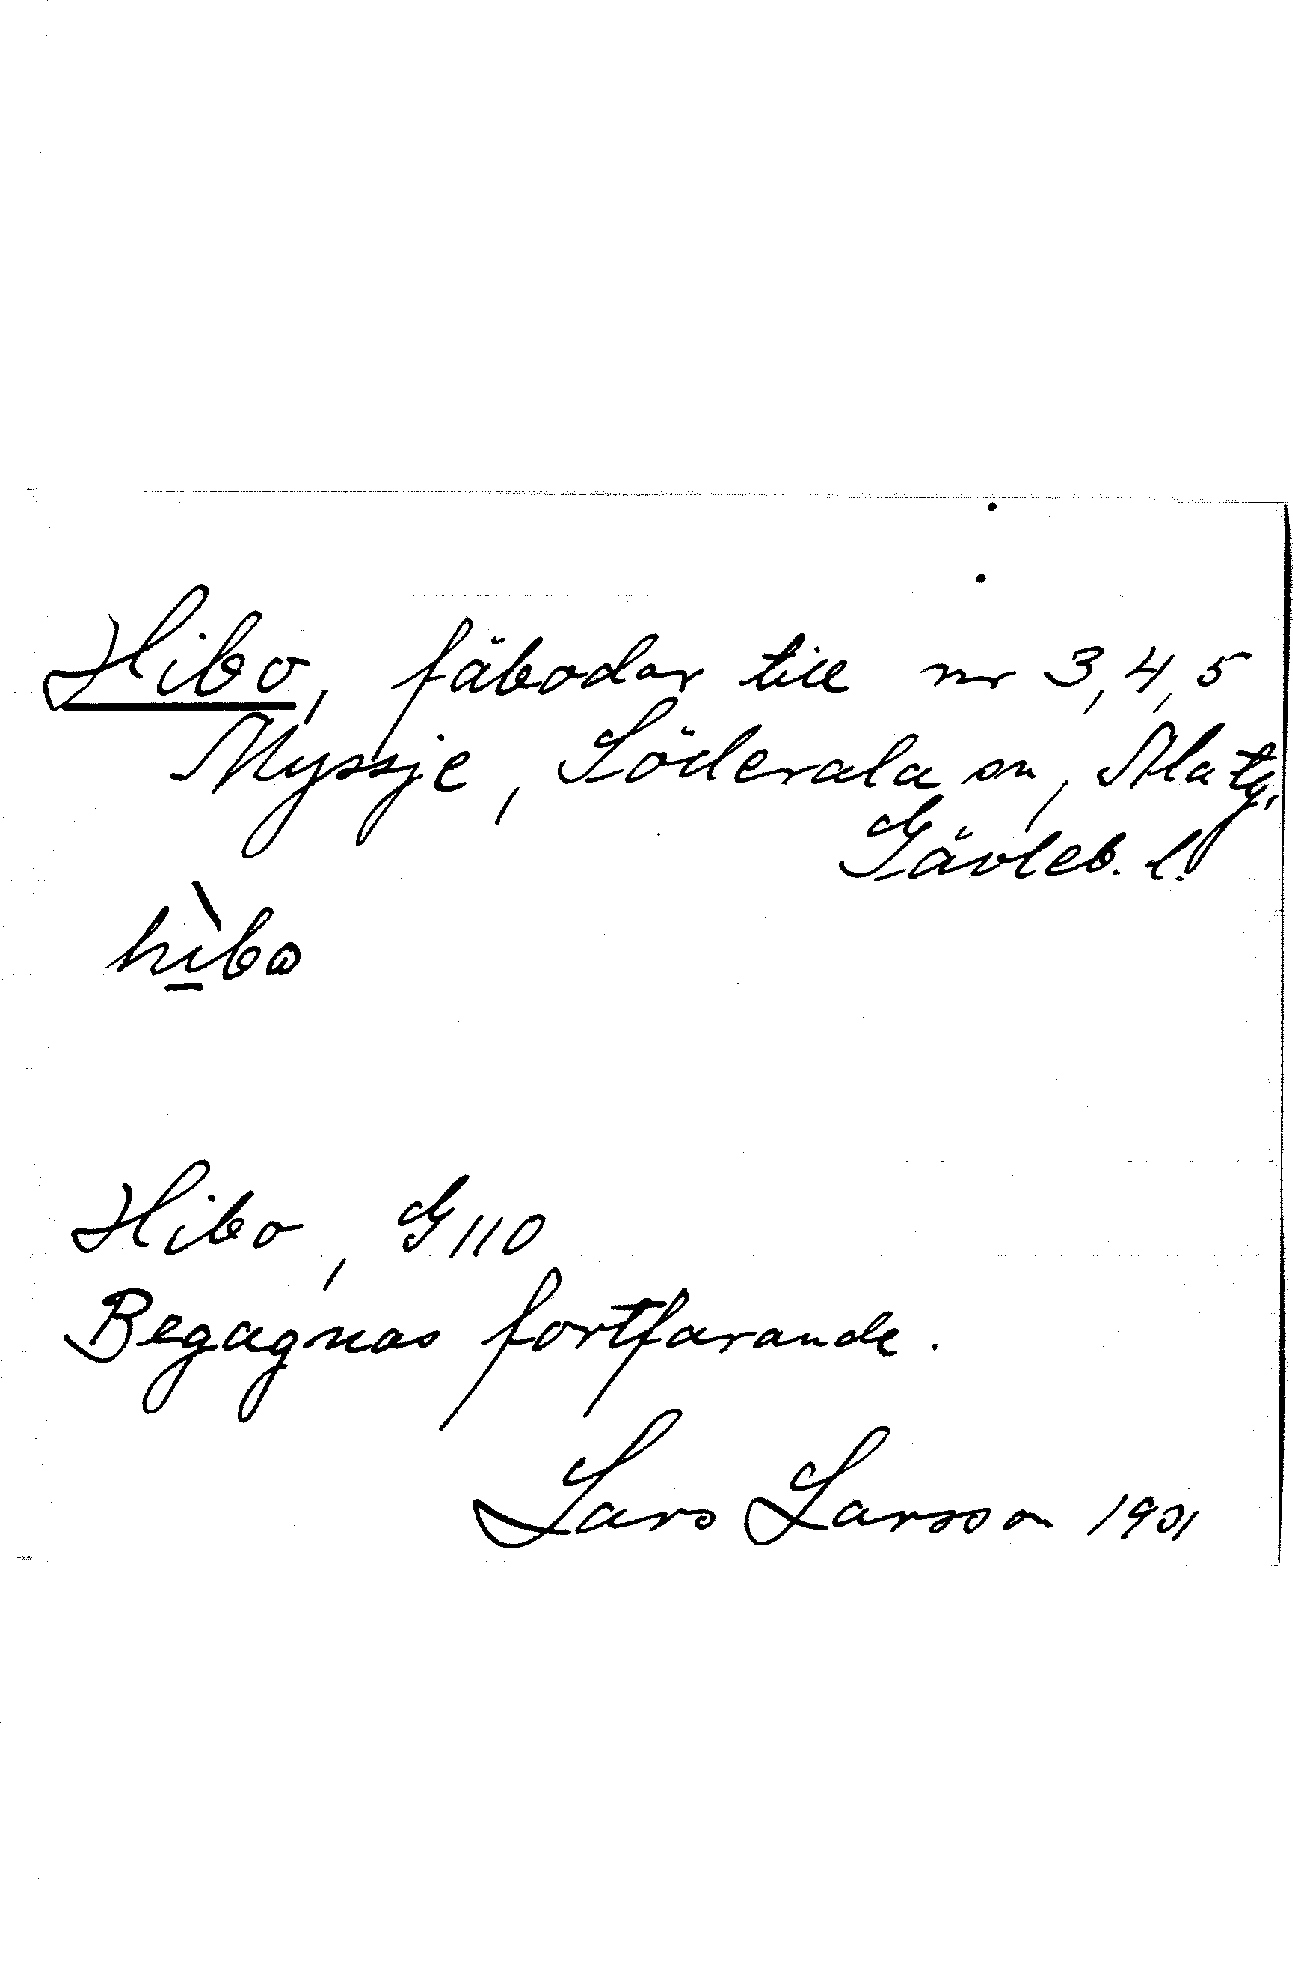 Hibo, fäbodar till nr 3, 4, 5
Myssje, Söderala sn, Ala tg,
Gävleb. l.
hìbo
Hibo, G 110
Begagnas fortfarande.
Lars Larsson 1901